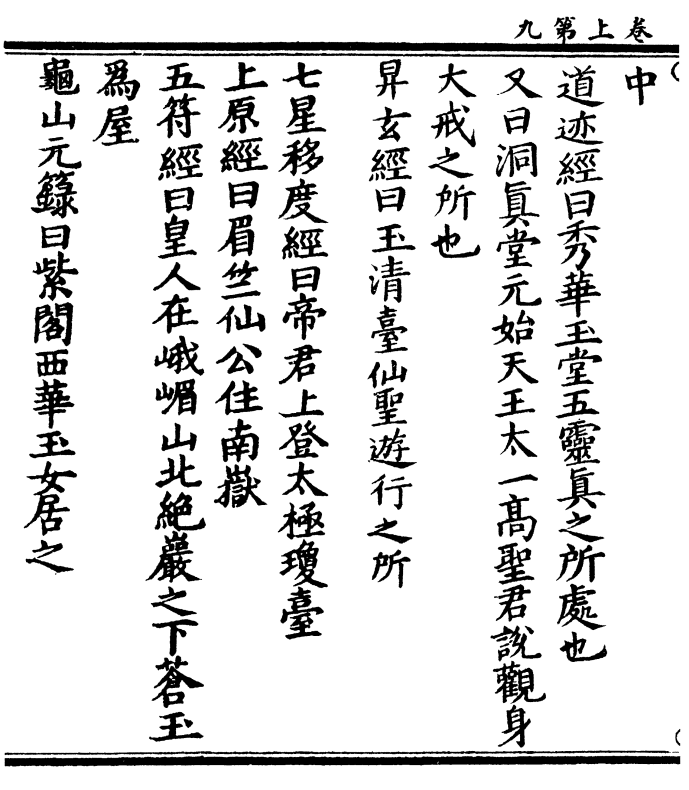 卷上第九
中
道迹經曰秀華玉堂五靈眞之所處也
又曰洞眞堂元始天王太一髙聖君說觀身
大戒之所也
昇玄經曰玉清臺仙聖遊行之所
七星移度經曰帝君上登太極瓊臺
上原經曰眉竺仙公住南嶽
五符經曰皇人在峨嵋山北絶巖之下蒼玉
爲屋
龜山元籙曰紫閣西華玉女居之